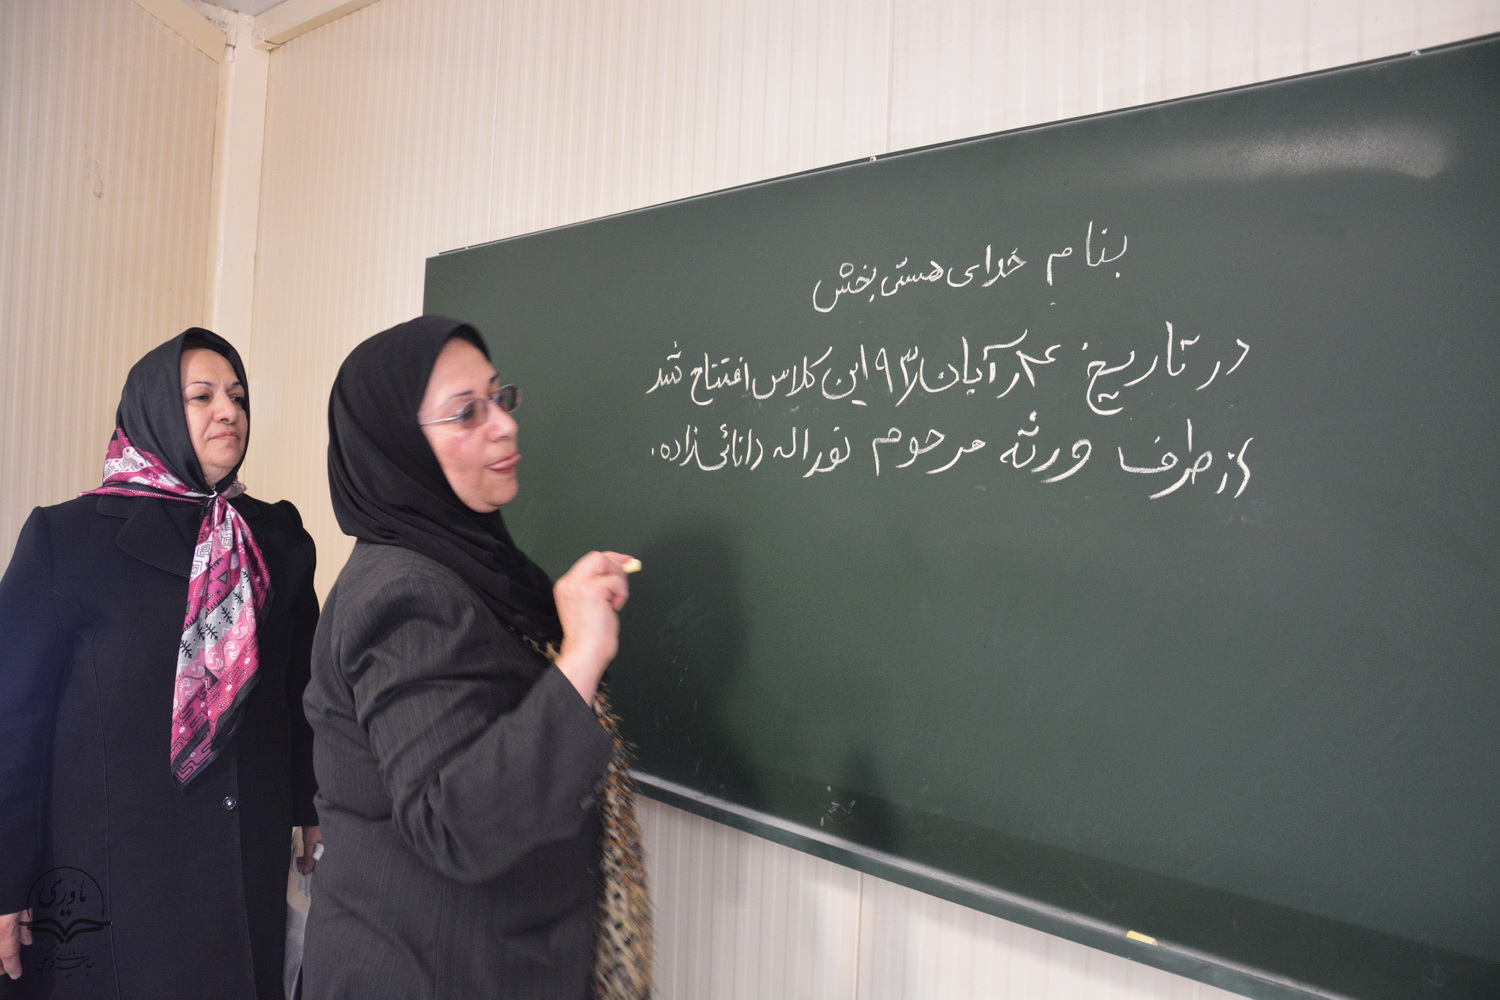 بنام خدای هستی بخش
در تاریخ ۴ر آبان ۹۳ این کلاس افتتاح شد
از طرف ورثه مرحوم نوراله دانائی‌زاده.
یاوری